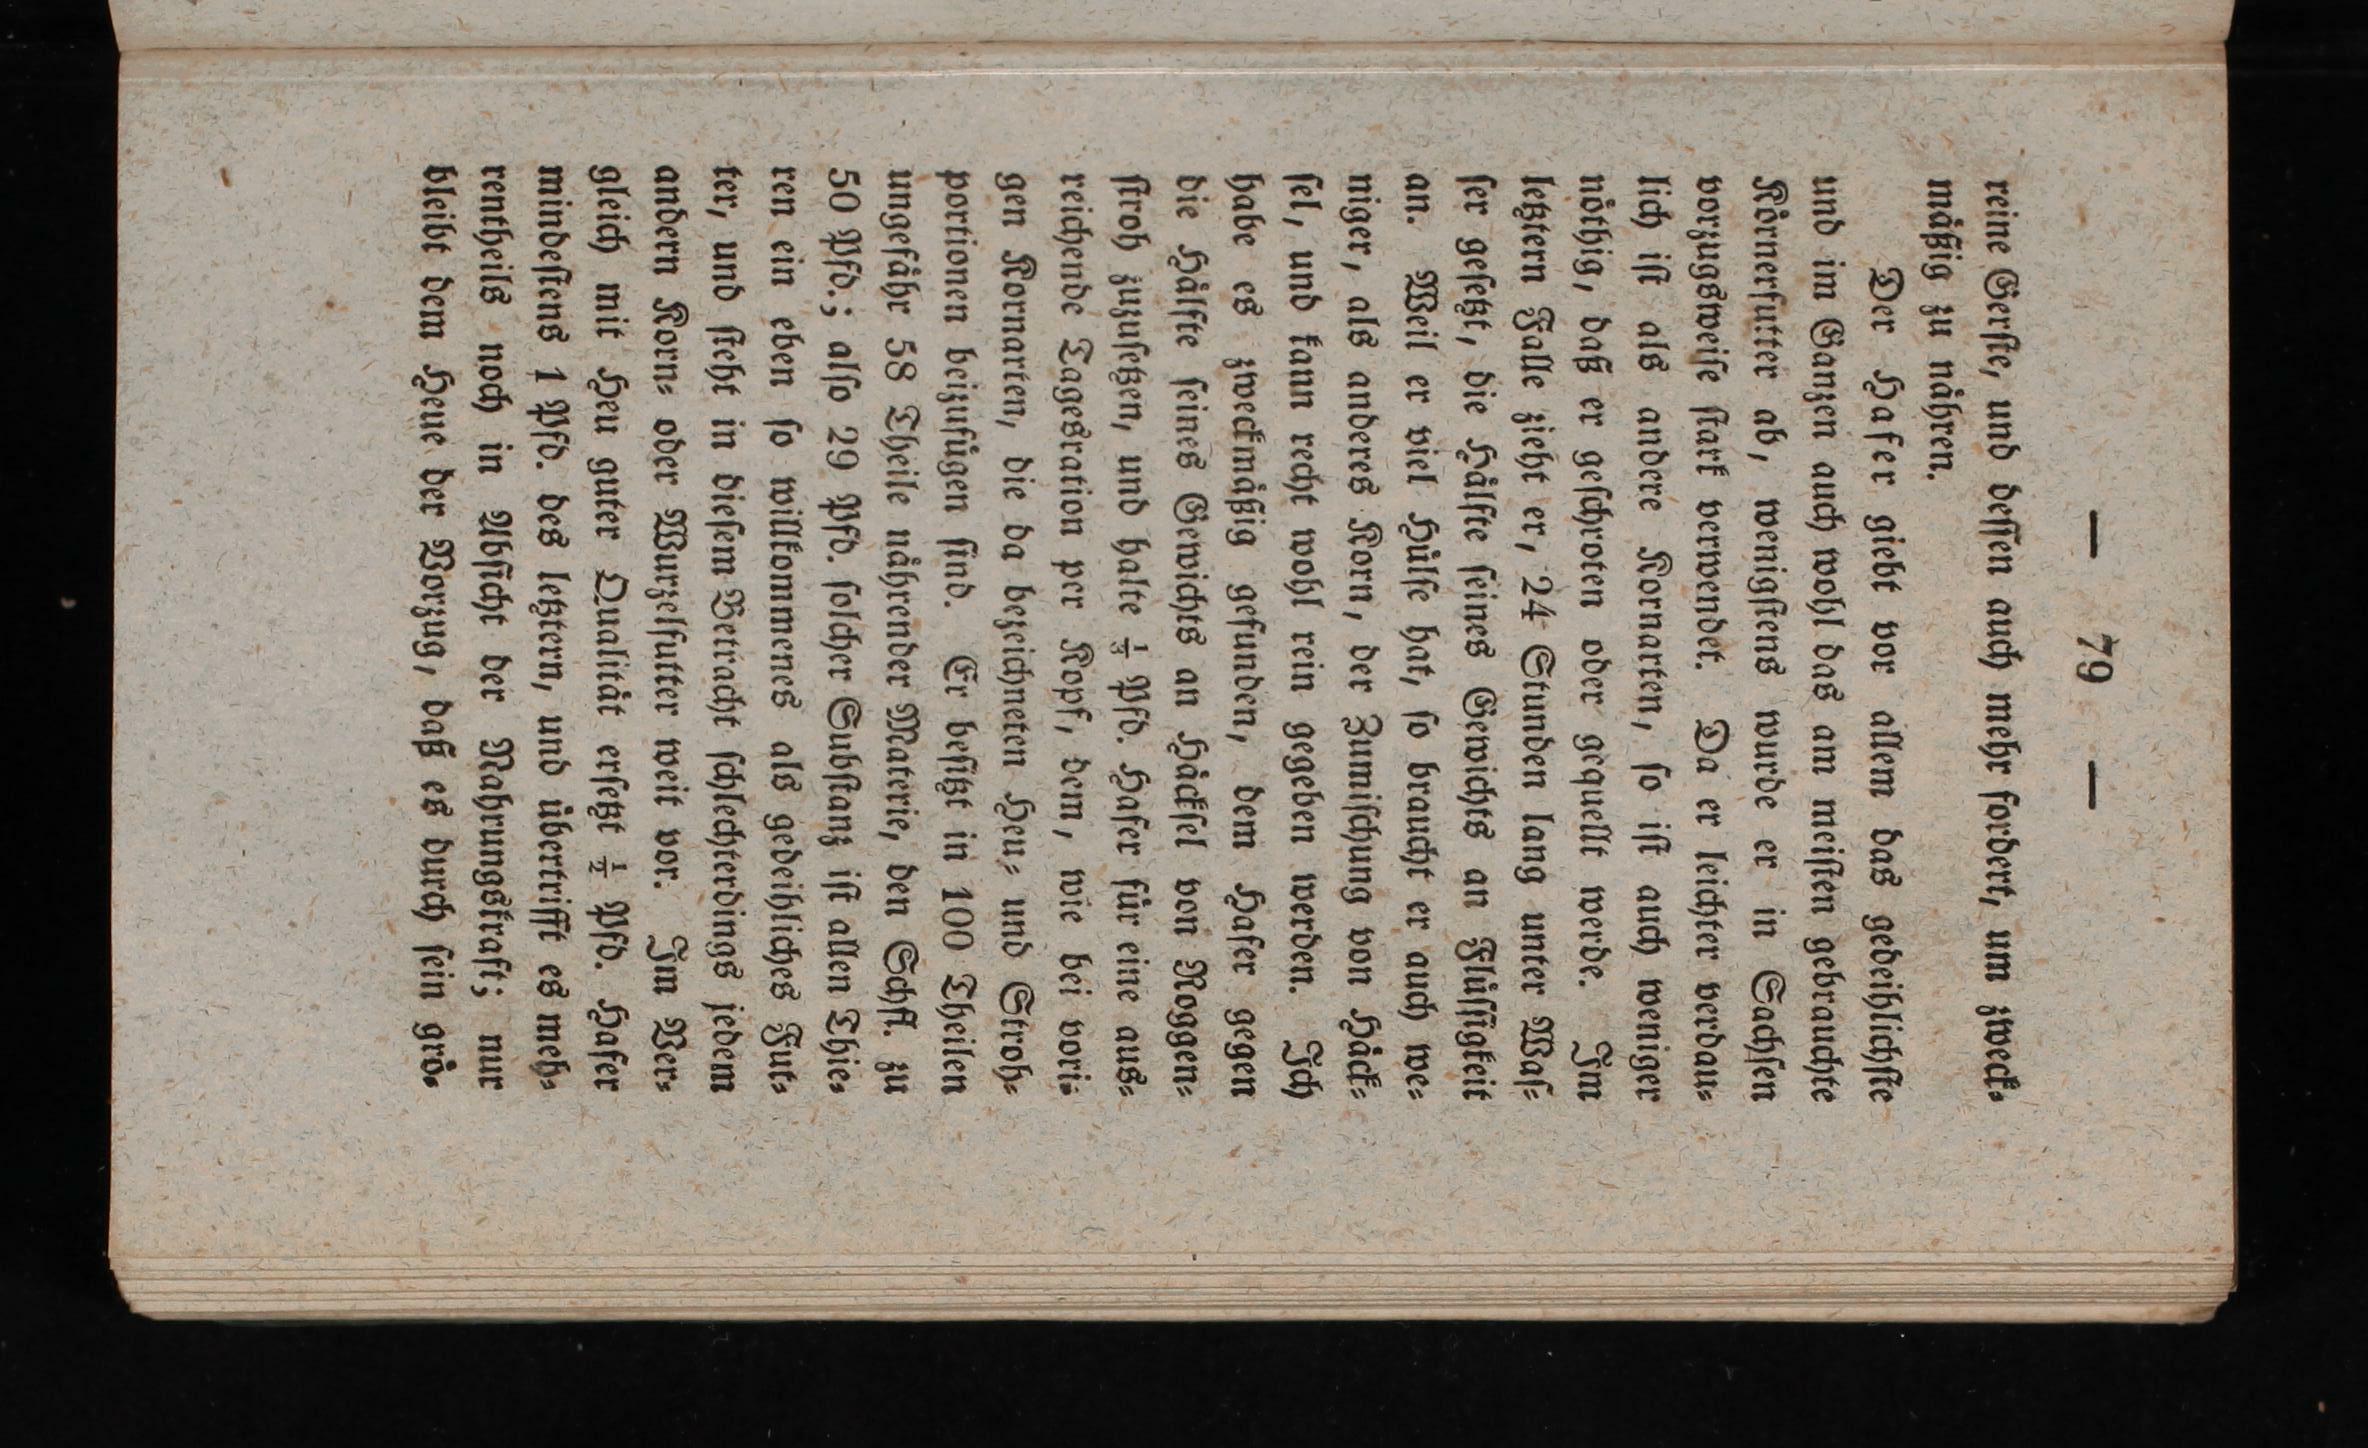 — 79 —
reine Gerſte, und deſſen auch mehr fordert, um zweck⸗
mäßig zu nähren.
Der Hafer giebt vor allem das gedeihlichſte
und im Ganzen auch wohl das am meiſten gebrauchte
Körnerfutter ab, wenigſtens wurde er in Sachſen
vorzugsweiſe ſtark verwendet. Da er leichter verdau⸗
lich iſt als andere Kornarten, ſo iſt auch weniger
nöthig, daß er geſchroten oder gequellt werde. Im
letztern Falle zieht er, 24 Stunden lang unter Waſ⸗
ſer geſetzt, die Hälfte ſeines Gewichts an Flüſſigkeit
an. Weil er viel Hülſe hat, ſo braucht er auch we⸗
niger, als anderes Korn, der Zumiſchung von Häck⸗
ſel, und kann recht wohl rein gegeben werden. Ich
habe es zweckmäßig gefunden, dem Hafer gegen
die Hälfte ſeines Gewichts an Häckſel von Roggen⸗
ſtroh zuzuſetzen, und halte ⅓ Pfd. Hafer für eine aus⸗
reichende Tagesration per Kopf, dem, wie bei vori⸗
gen Kornarten, die da bezeichneten Heu⸗ und Stroh⸗
portionen beizufügen ſind. Er beſitzt in 100 Theilen
ungefähr 58 Theile nährender Materie, den Schfl. zu
50 Pfd.; alſo 29 Pfd. ſolcher Subſtanz iſt allen Thie⸗
ren ein eben ſo willkommenes als gedeihliches Fut⸗
ter, und ſteht in dieſem Betracht ſchlechterdings jedem
andern Korn⸗ oder Wurzelfutter weit vor. Im Ver⸗
gleich mit Heu guter Qualität erſetzt ½ Pfd. Hafer
mindeſtens 1 Pfd. des letztern, und übertrifft es meh⸗
rentheils noch in Abſicht der Nahrungskraft; nur
bleibt dem Heue der Vorzug, daß es durch ſein grö⸗